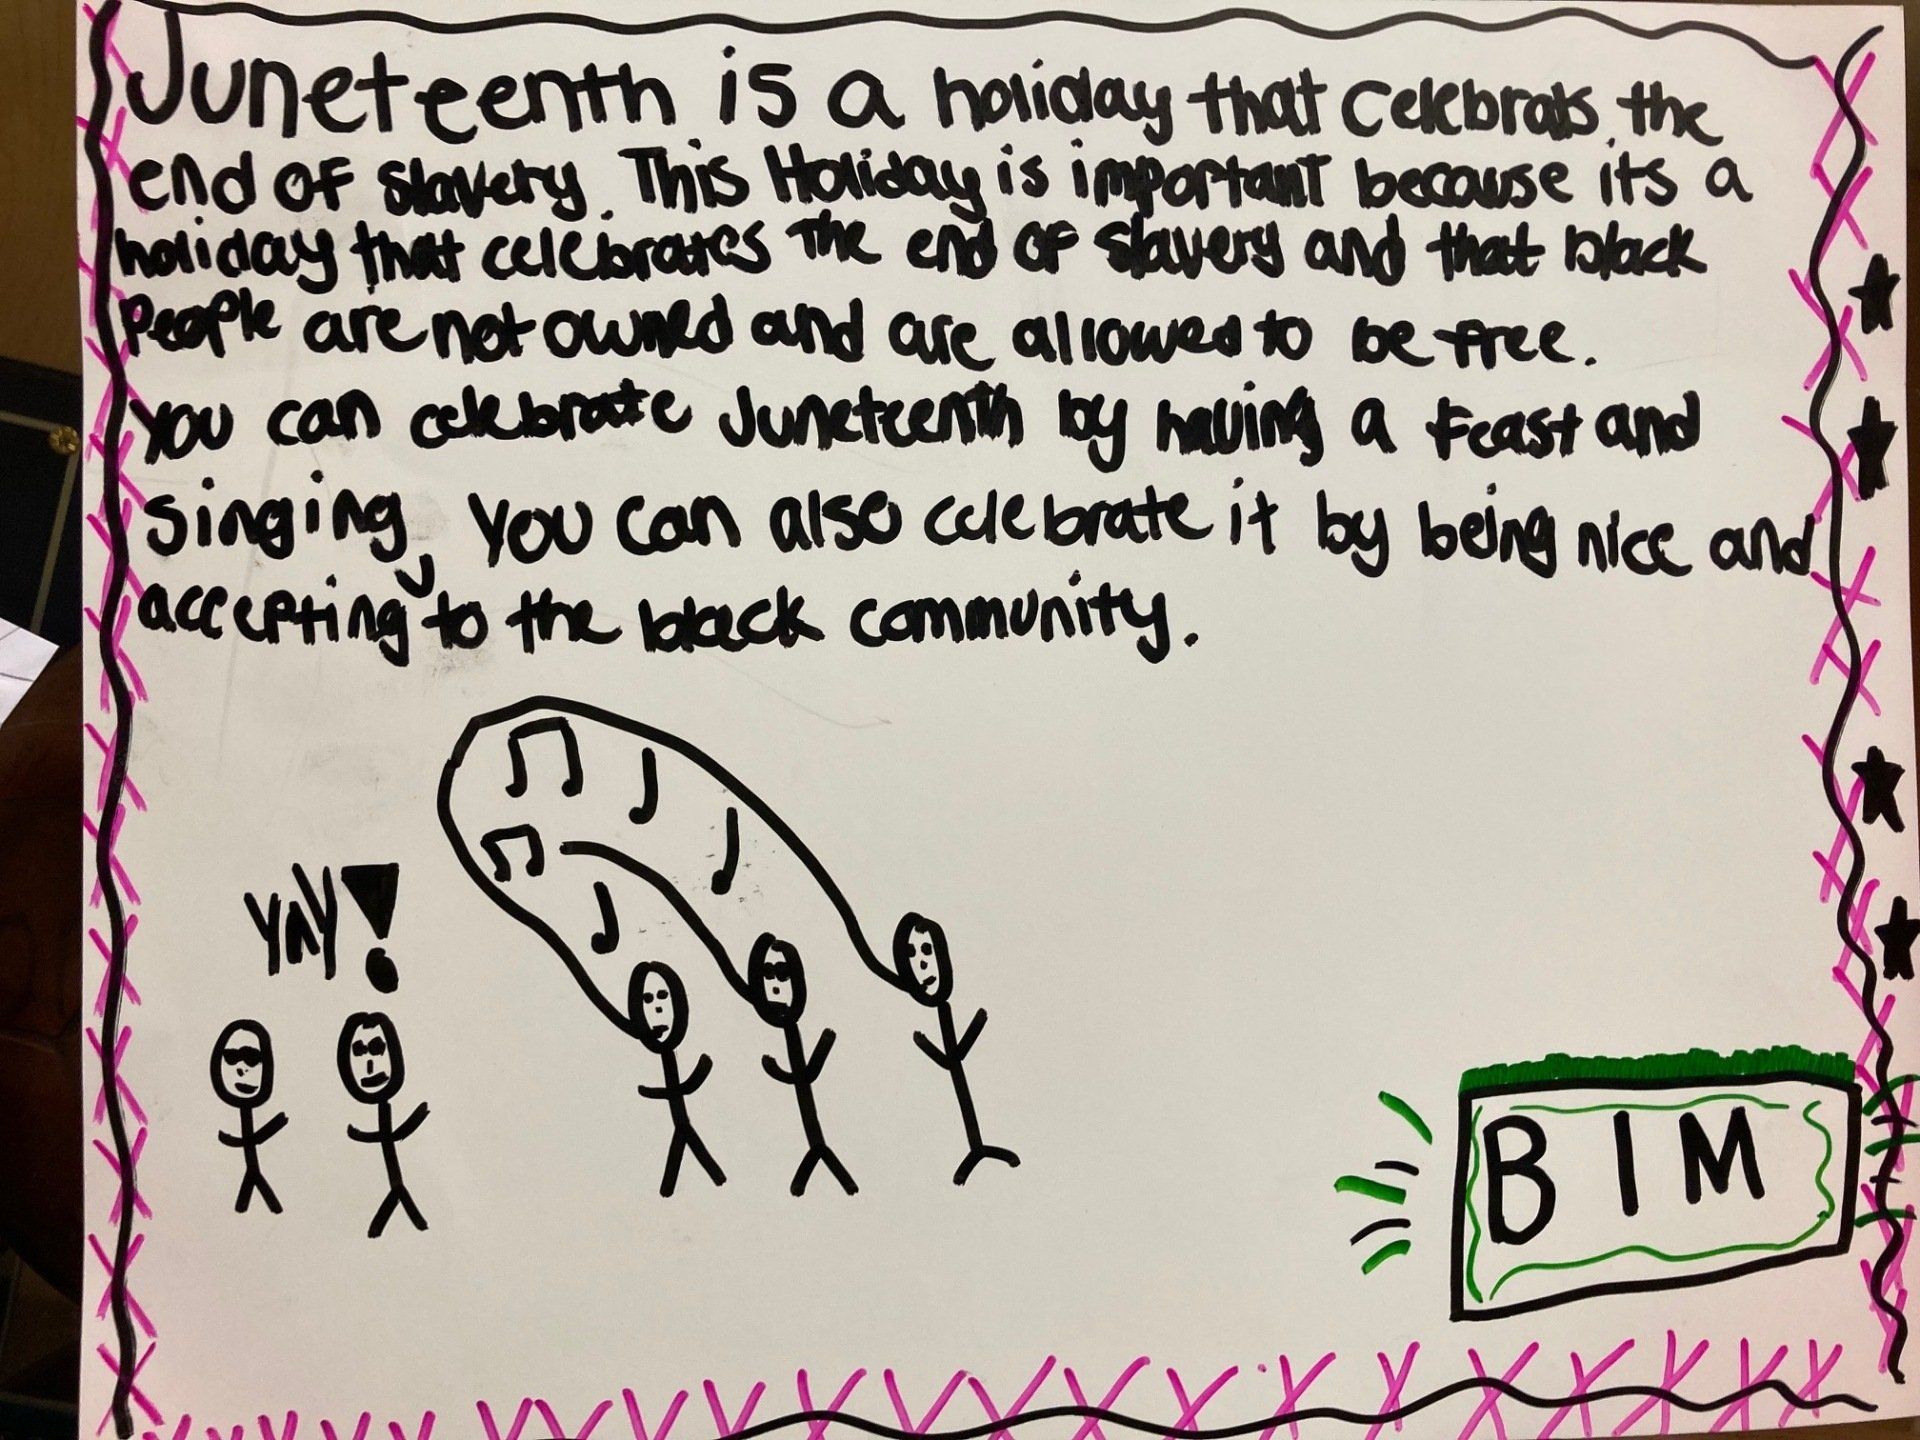 Juneteenth is a holiday that celebrats the
end of slavery. This Holiday is important because its a
holiday that celebrates the end of slavery and that black
People are not owned and are allowed to be free.
You can celebrate Juneteenth by having a feast and
singing, you can also celebrate it by being nice and
accepting to the black community.
YAY!
BIM